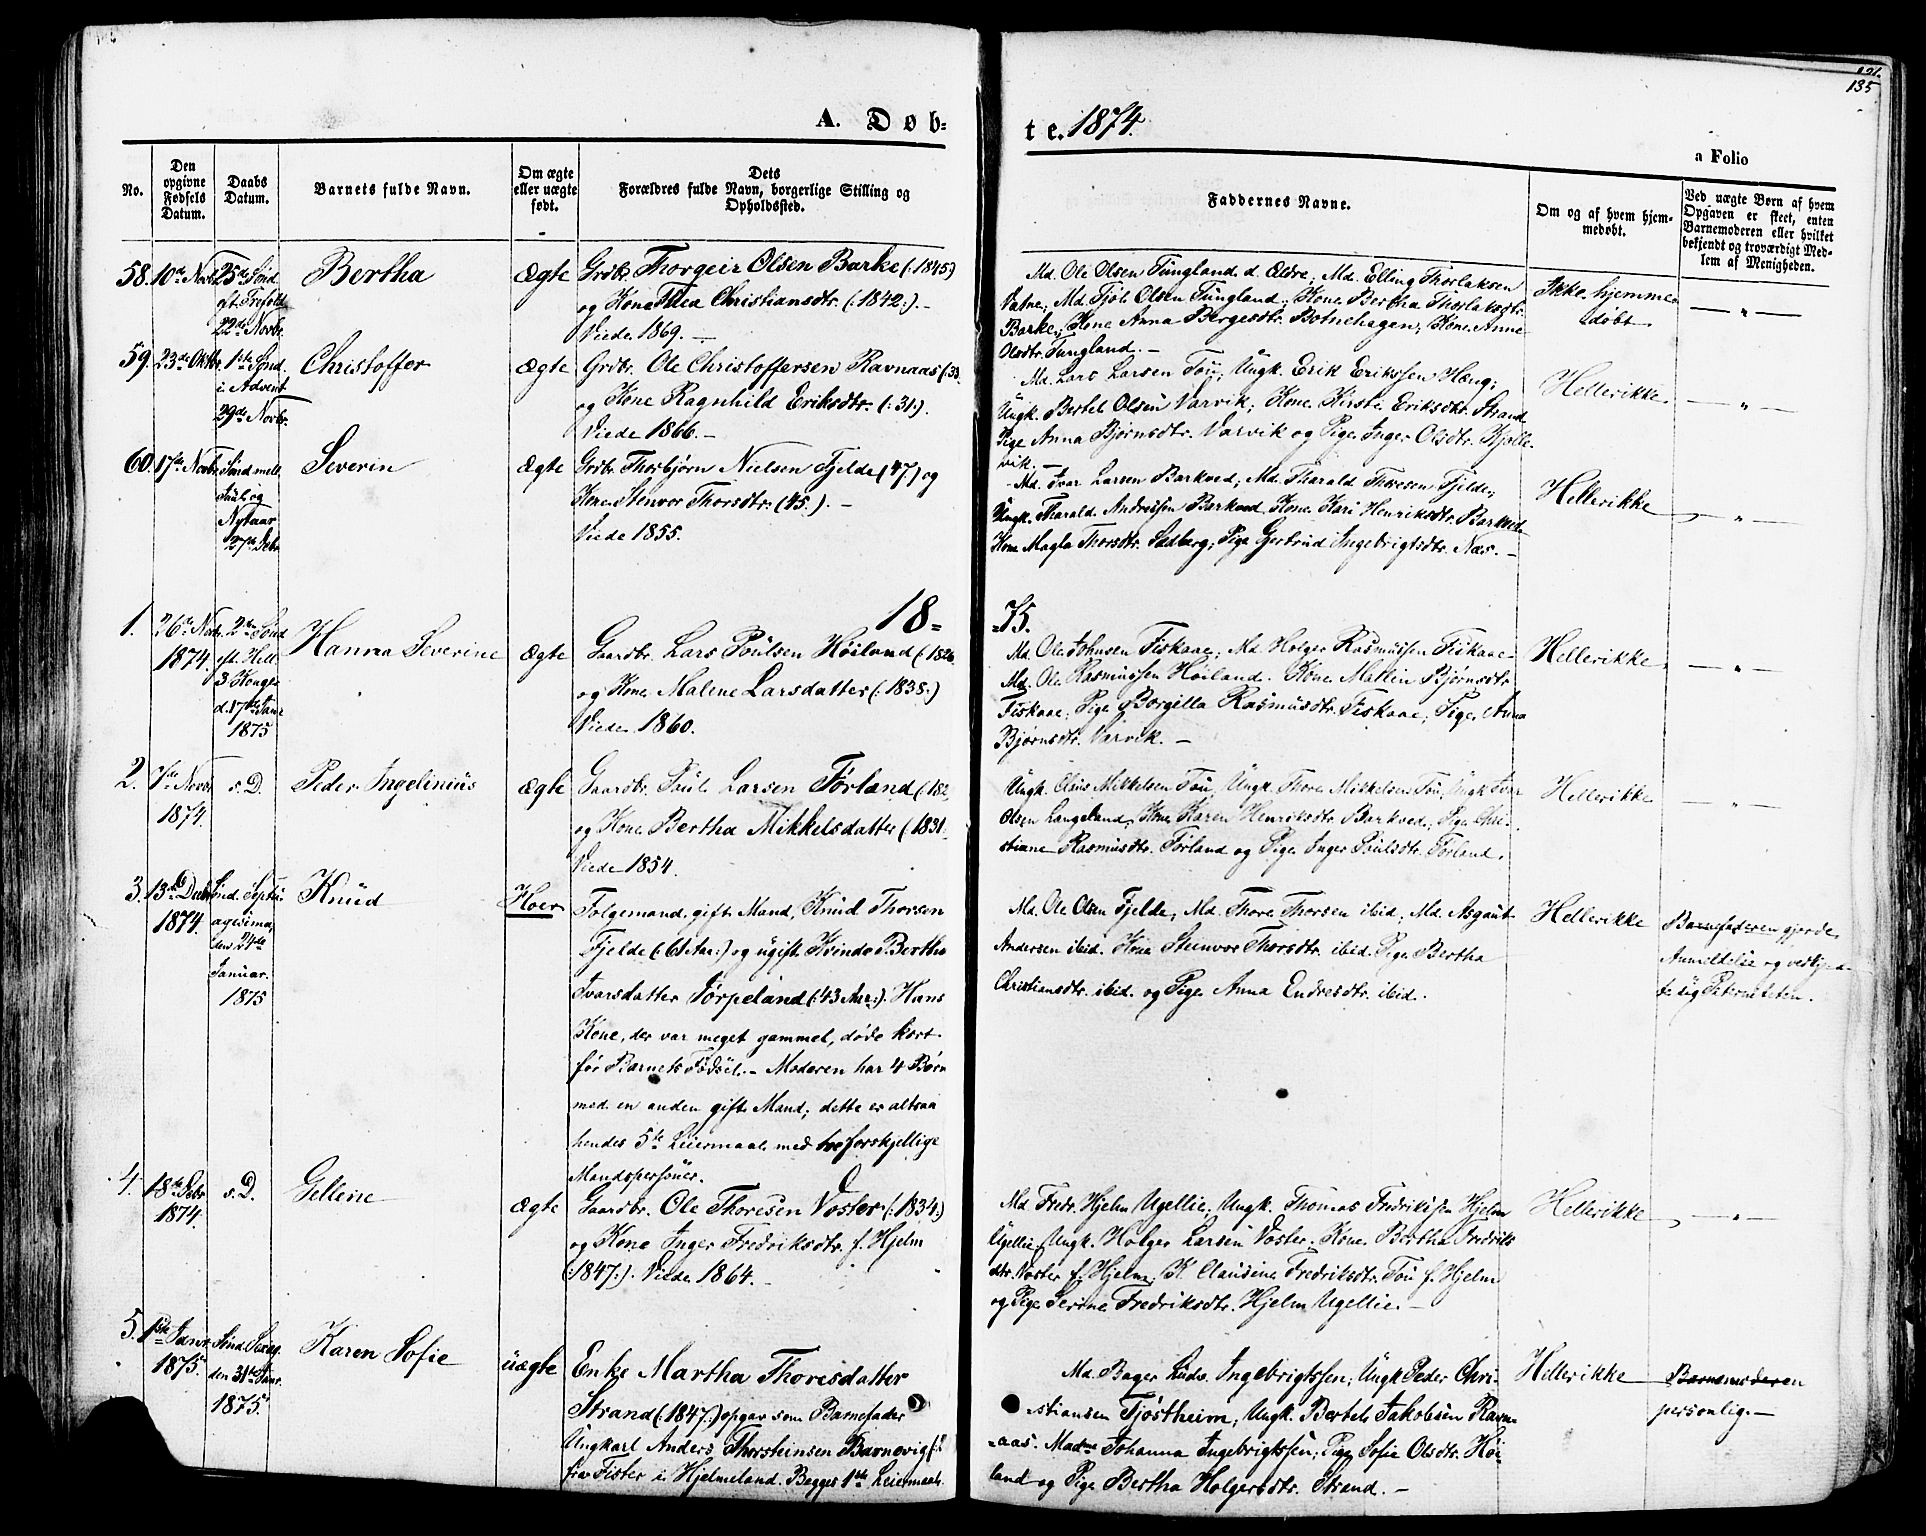 A. Døb-
te. 1874.
121.
135
a Folio
No.
Den opgivne Fødsels Datum.
Daabs Datum.
Barnets fulde Navn.
Om ægte eller uægte født.
Dets
Forældres fulde Navn, borgerlige Stilling og
Opholdssted.
Faddernes Navne.
Om og af hvem hjem-
medøbt.
Ved uægte Børn af hvem
Opgaven er skeet, enten
Barnemoderen eller hvilket
bekjendt og troværdigt Med-
lem af Menigheden.
58. 10de Novbr 25de Sønd
eft. Trefold.
22de Novbr.
Bertha
Ægte
Grdbr. Thorgeir Olsen Barke (:1845)
og Kone Thea Christiansdtr. (:1842:). -
Viede 1869. -
Md. Ole Olsen Tungland d. Ældre; Md. Elling Thorlaksen
Vatne; Md. Tjöl Olsen Tungland; Kone Bertha Thorlaksdtr.
Barke; Kone Anna Bergesdtr. Botnehagen; Kone Anne
Olsdtr. Tungland. -
Ikke hjemme-
døbt
- " -
59. 23de Oktbr. 1ste Sønd.
i Advent
29de Novbr.
Christoffer
Ægte
Grdbr. Ole Christoffersen Ravnaas (:33
og Kone Ragnhild Eriksdtr. (:31:).
Viede 1866. -
Md. Lars Larsen Tou; Ungk. Erik Erikssen Hæng;
Ungk. Bertel Olsen Varvik; Kone Kirsti Eriksdtr. Strand
Pige Anna Bjørnsdtr. Varvik og Pige Inger Olsdtr. Kjølle-
vik. -
Hellerikke
- " -
60. 17de Novbr. Sønd. mell.
Juul og
Nytaar
27de Debr.
Severin
Ægte
Grdbr. Thorbjørn Nielsen Fjelde (47) og
Kone Stenvor Thorsdtr. (45.). -
Viede 1855.
Md. Ivar Larsen Barkved; Md. Tharald Thoresen Fjelde;
Ungk. Tharald Andressen Barkved Kone Kari Henriksdtr. Barkved
Kone Magla Thorsdtr. Sedberg; Pige Gjertrud Ingebrigtsdtr. Næs. -
Hellerikke
- " -
18=
=75.
1. 26de Novbr. 2den Sønd
1874. eft. Hell.
3 Konger
d. 17de Janr
1875
Hanna Severine
Ægte
Gaardbr. Lars Poulsen Høiland (:1826
og Kone Malene Larsdatter (:1838:)
Viede 1860.
Md. Ole Johnsen Fiskaae; Md Holger Rasmussen Fiskaae
Md. Ole Rasmussen Høiland. Kone Mallin Bjørnsdtr
Fiskaae; Pige Borgilla Rasmusdtr. Fiskaae; Pige Anna
Bjørnsdtr. Varvik. -
Hellerikke
- " -
2. 7de Novbr s. D.
1874.
Peder Ingelinius
Ægte
Gaardbr. Paul Larsen Førland (:182
og Kone Bertha Mikkelsdatter (:1831:
Viede 1854.
Ungk. Claus Mikkelsen Tou, Ungk. Thore Mikkelsen Tou, Ungk Ivar
Olsen Langeland, Kone Karen Henriksdtr. Barkved, Pige Chri-
stiane Rasmusdtr. Førland og Pige Inger Poulsdtr. Førland.
Hellerikke
- " -
3. 13de Decbr Sønd. Septu-
1874. agesima
den 24de
Januar.
1875
Knud
Hoer
Følgemand, gift Mand, Knud Thorsen
Fjelde (:61 Aar:) og ugift Kvinde Bertha
Ivarsdatter Jørpeland (:43 Aar:). Hans
Kone, der var meget gammel, døde kort
før Barnets Fødsel. - Moderen har 4 Børn
med en anden gift Mand; dette er altsaa
hendes 5te Leiermaal med to forskjellige
Mandspersoner.
Md. Ole Olsen Fjelde, Md. Thore Thorsen ibid, Md. Asgaut
Andersen ibid. Kone Steinvor Thorsdtr. ibid. Pige Bertha
Christiansdtr. ibid. og Pige Anna Endresdtr. ibid.
Hellerikke
Barnefaderen gjorde
Anmeldelse og vedkjend-
te sig Paterniteten.
4. 18de Debr s. D.
1874.
Gellene
Ægte
Gaardbr. Ole Thoresen Voster (:1834:)
og Kone Inger Fredriksdtr. f. Hjelm
(:1847:). Viede 1864. -
Md Fredr. Hjelm Ugellie, Ungk. Thomas Fredriksen Hjelm
Ugellie, Ungk. Holger Larsen Voster. Kone Bertha Fredriks
dtr. Voster f. Hjelm; K. Clausine Fredriksdtr. Tou f. Hjelm
og Pige Serine Fredriksdtr. Hjelm Ugellie. -
Hellerikke
- " -
5. 1ste Janr. Sønd. Sexag.
1875. den 31te Janr.
1875.
Karen Sofie
uægte
Enke Martha Thoresdatter
Strand (:1847:) opgav som Barnefader
Ungkarl Anders Thorsteinsen Barnevig
fra Fister i Hjelmeland. Begges 1ste Leiermaal.
Md. Bager Ludv. Ingebrigtssen; Ungk Peder Chri-
stiansen Tjøstheim; Ungk. Bertel Jakobsen Ravn-
aas. Madme Johanna Ingebrigtssen; Pige Sofie Olsdtr. Høi-
land og Pige Bertha Holgersdtr. Strand. -
Hellerikke
Barnemoderen
personlig. -